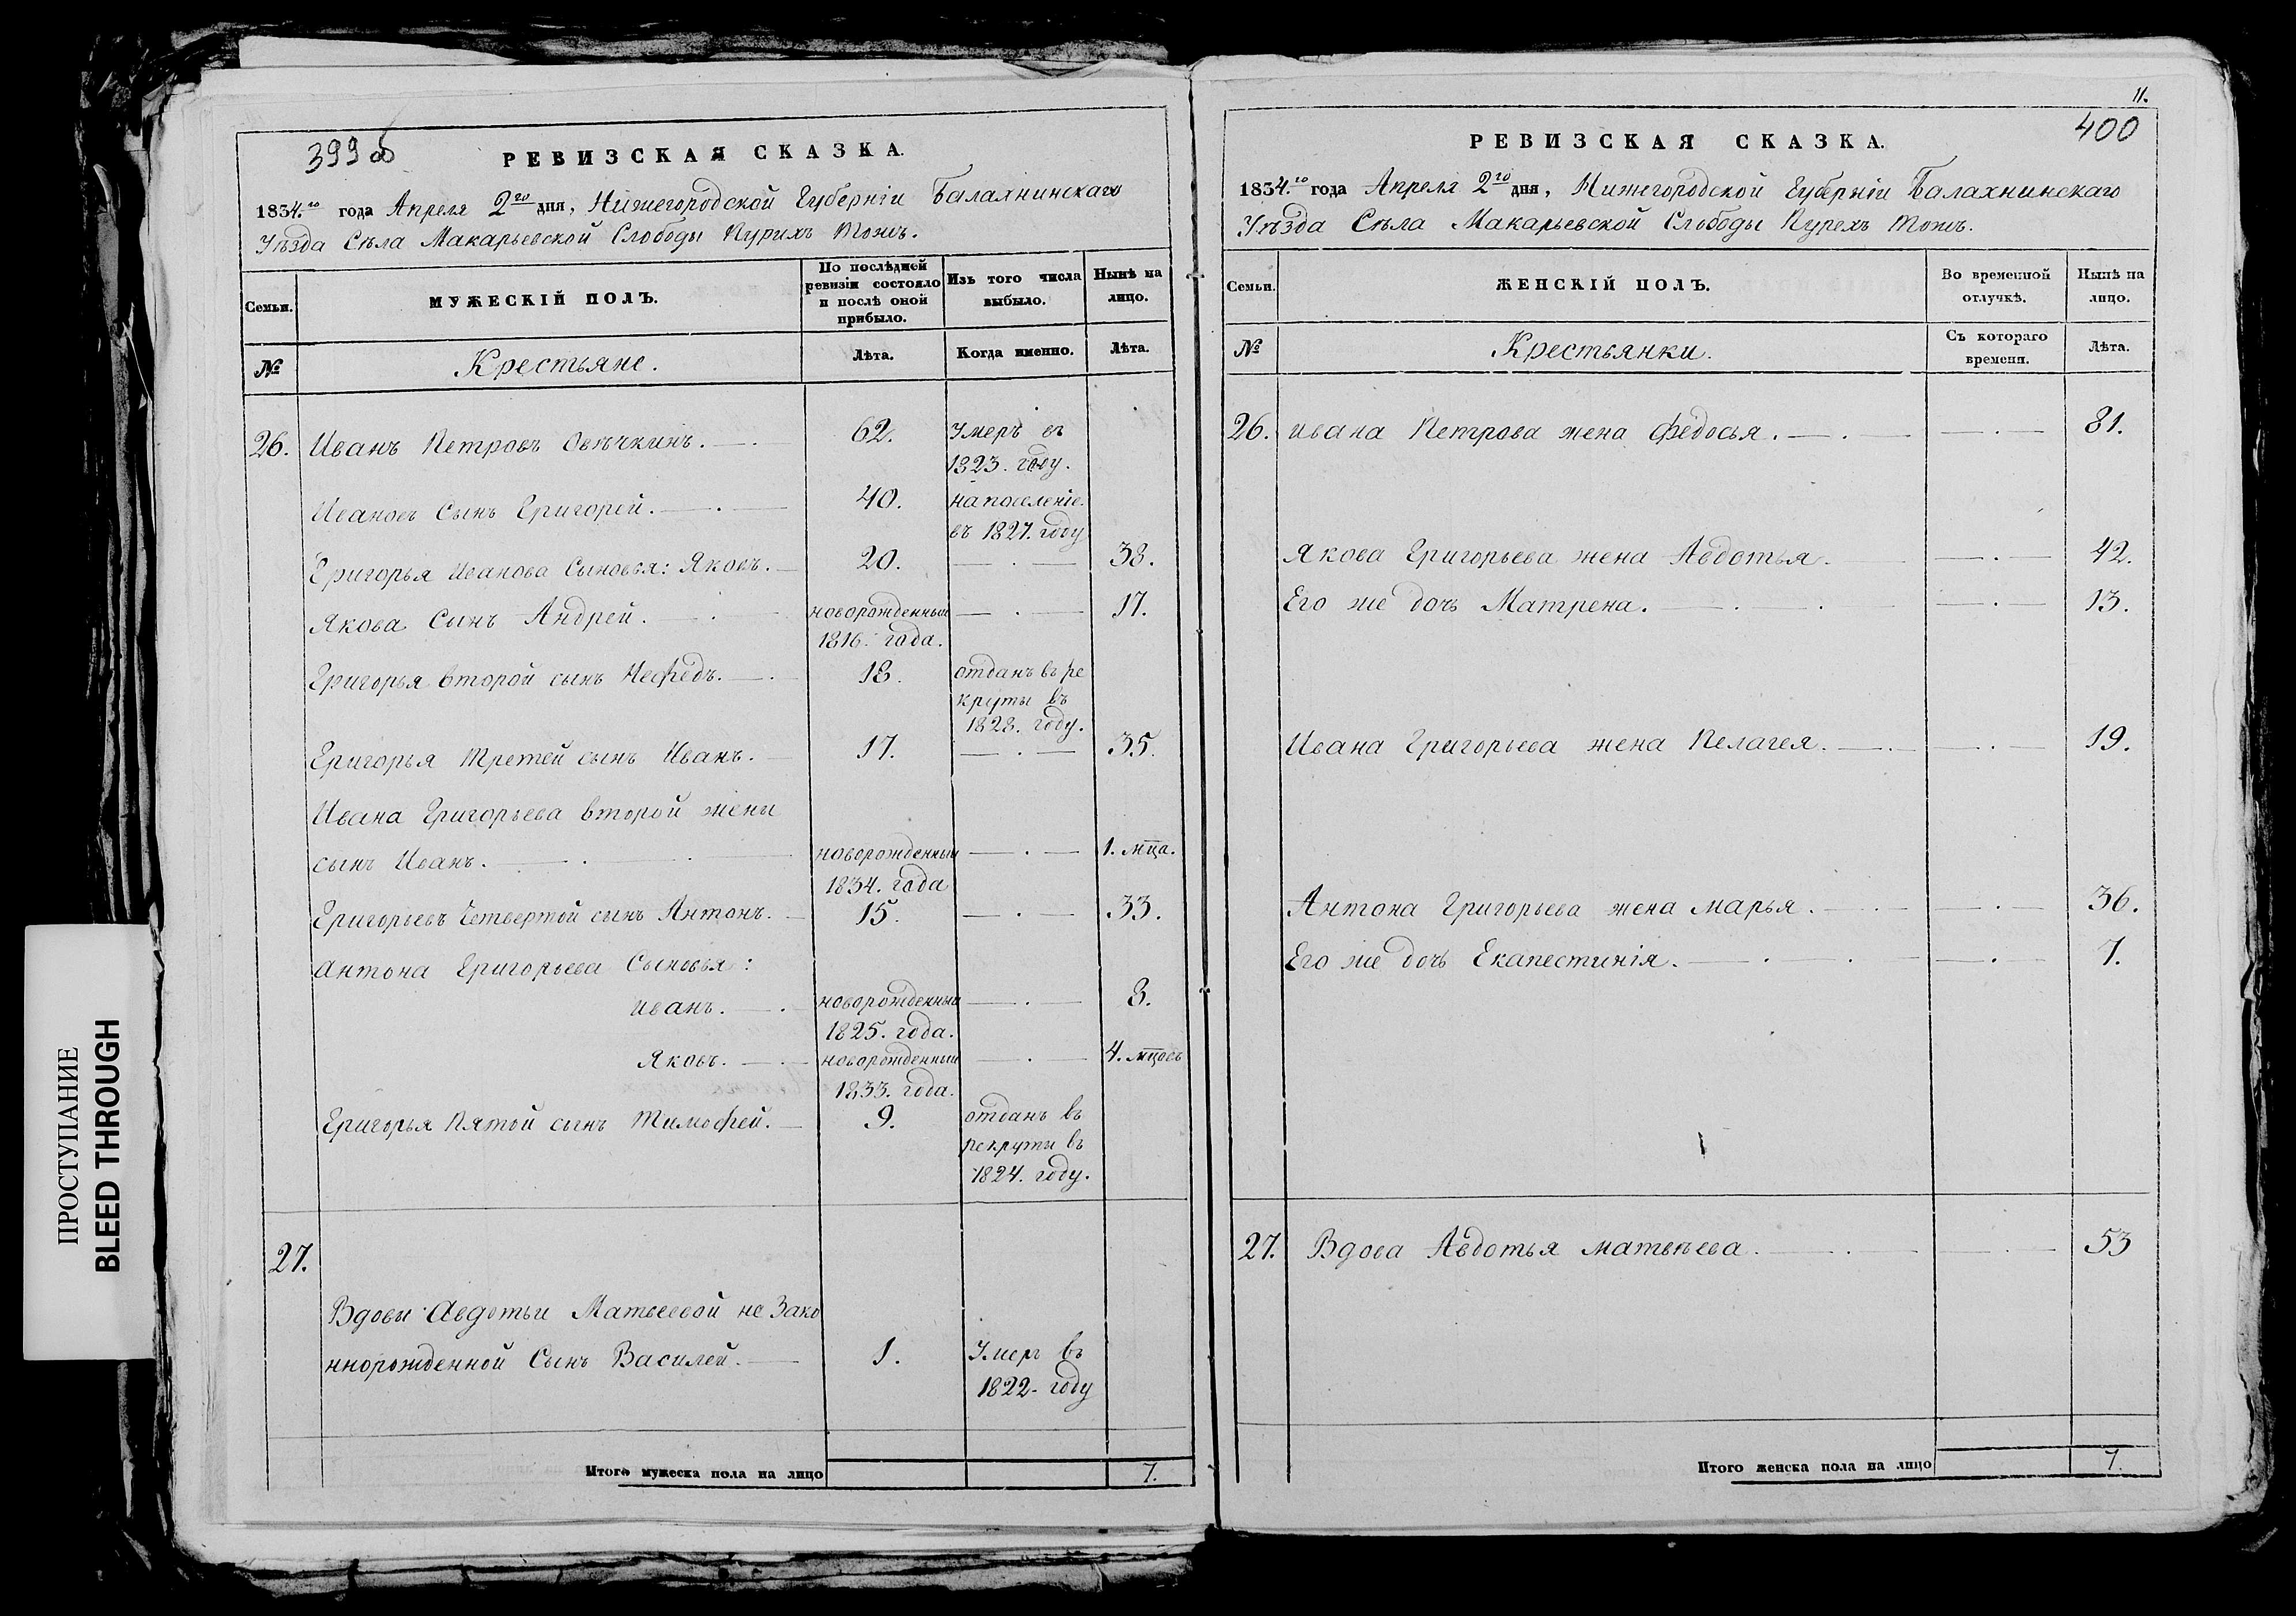 399 об
РЕВИЗСКАЯ СКАЗКА.
1834.го года Апреля 2го дня, Нижегородской Губерніи Балахнинскаго
Уѣзда Села Макарьевской Слободы Пурихъ тожъ.
Семьи.
МУЖЕСКІЙ ПОЛЪ.
По послѣдней ревизіи состояло и послѣ оной прибыло.
Изъ того числа выбыло.
Нынѣ на лицо.
№
Крестьяне.
Лѣта.
Когда именно.
Лѣта.
26. Иванъ Петровъ Овѣчкинъ. 62. Умеръ въ
1823. году.
Ивановъ Сынъ Григорей. 40. на поселеніе
въ 1827. году
Григорья Иванова Сыновья: Яковъ. 20. 38.
Якова Сынъ Андрей. новорожденный 17.
1816. года.
Григорья второй сынъ Нефедъ. 18. отданъ въ ре
круты въ
1828. году.
Григорья третей сынъ Иванъ. 17. 35.
Ивана Григорьева второй жены
сынъ Иванъ. новорожденный 1. мца.
1834. года
Григорьевъ четвертой сынъ Антонъ. 15. 33.
Антона Григорьева Сыновья:
Иванъ. новорожденный 8.
1825. года.
Яковъ. новорожденный 4. мцовъ
1833. года.
Григорья Пятой сынъ Тимофей. 9. отданъ въ
рекруты въ
1824. году.
27.
Вдовы Авдотьи Матвеевой не Зако
ннорожденной Сынъ Василей. 1. Умеръ въ
1822. году
Итого мужеска пола на лицо 7.
11.
400
РЕВИЗСКАЯ СКАЗКА.
1834.го года Апреля 2го дня, Нижегородской Губерніи Балахнинскаго
Уѣзда Села Макарьевской Слободы Пурехъ тожъ.
Семьи.
ЖЕНСКІЙ ПОЛЪ.
Во временной отлучкѣ.
Нынѣ на лицо.
№
Крестьянки.
Съ котораго времени.
Лѣта.
26. Ивана Петрова жена Федосья. 81.
Якова Григорьева жена Авдотья. 42.
Его же дочь Матрена. 13.
Ивана Григорьева жена Пелагея. 19.
Антона Григорьева жена Марья. 36.
Его же дочь Екапестинія. 7.
27. Вдова Авдотья Матвѣева. 53
Итого женска пола на лицо 7.
ПРОСТУПАНИЕ
BLEED THROUGH